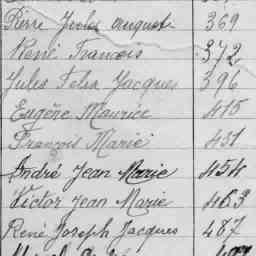 Pierre Jules August 369
René Francois 372
Jules Felix Jacques 396
Eugène Maurice 415
François Marie 431
André Jean Marie 454
Victor Jean Marie 463
René Joseph Jacques 487